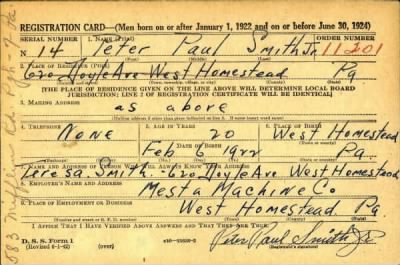 REGISTRATION CARD—(Men born on or after January 1, 1922 and on or before June 30, 1924)
SERIAL NUMBER 1. NAME (Print) ORDER NUMBER
N 14 Peter Paul Smith Jr 11201
2. PLACE OF RESIDENCE (Print)
620 Doyle Ave West Homestead Pa
[THE PLACE OF RESIDENCE GIVEN ON THE LINE ABOVE WILL DETERMINE LOCAL BOARD
JURISDICTION; LINE 2 OF REGISTRATION CERTIFICATE WILL BE IDENTICAL]
3. MAILING ADDRESS
as above
4. TELEPHONE 5. AGE IN YEARS 6. PLACE OF BIRTH
None 20 West Homestead
DATE OF BIRTH
Feb 6 1922 Pa.
7. NAME AND ADDRESS OF PERSON WHO WILL ALWAYS KNOW YOUR ADDRESS
Teresa Smith. 620 Doyle Ave West Homestead
8. EMPLOYER'S NAME AND ADDRESS
Mesta Machine Co
9. PLACE OF EMPLOYMENT OR BUSINESS
West Homestead Pa.
I AFFIRM THAT I HAVE VERIFIED ABOVE ANSWERS AND THAT THEY ARE TRUE.
D. S. S. Form 1
Peter Paul Smith Jr.
(Registrant's signature)